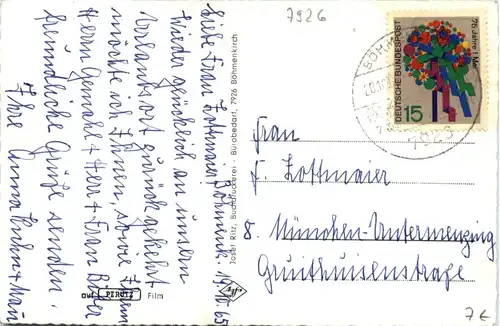 7926
Liebe Frau Zottmaier! Böhmenk. 19.10.65
Wieder glücklich an unserm
Urlaubsort zurückgekehrt
möchte ich Ihnen, sowie Ihrem
Herrn Gemahl + Herr + Frau
freundliche Grüße senden.
Ihre Anna
Josef Ritz, Buchdruckerei - Bürobedarf, 7926 Böhmenkirch
auf PERUTZ Film
Agfa
75 Jahre 1. Mai
DEUTSCHE BUNDESPOST
15
7926
Frau
F. Zottmaier
8. München-Untermenzing
Gruithuisenstraße
7€